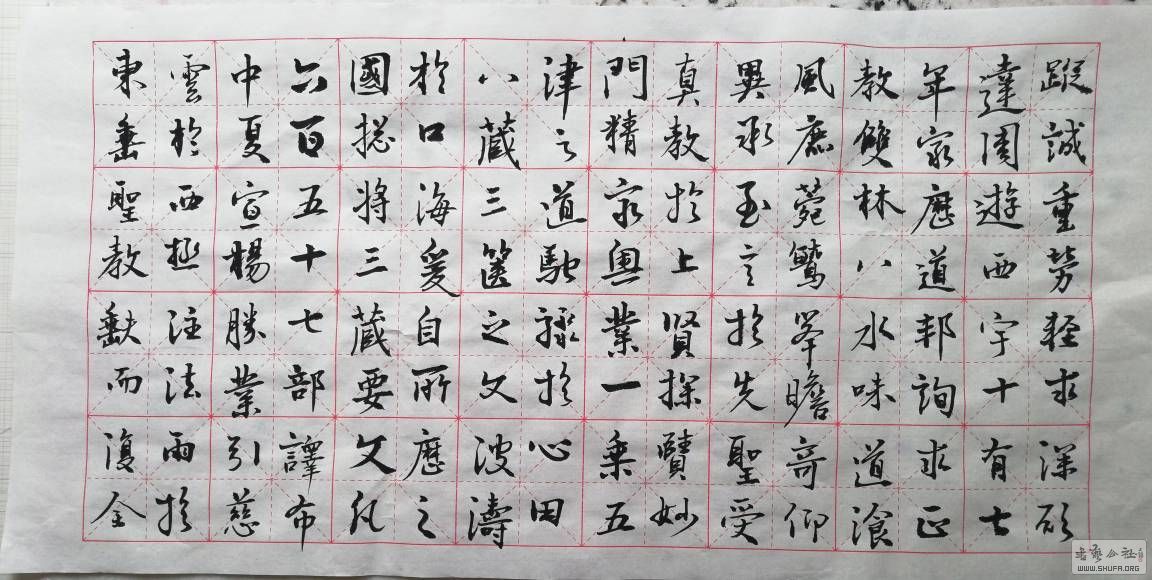 蹤誠重勞輕求深願
達周遊西宇十有七
年窮歷道邦詢求正
教雙林八水味道飡
風鹿菀鷲峯瞻奇仰
異承至言於先聖受
真教於上賢探賾妙
門精窮奧業一乘五
津之道馳驟於心田
八藏三篋之文波濤
於口海爰自所歷之
國揔將三藏要文凡
六百五十七部譯布
中夏宣揚勝業引慈
雲於西極注法雨於
東垂聖教缺而復全
WWW.SHUFA.ORG